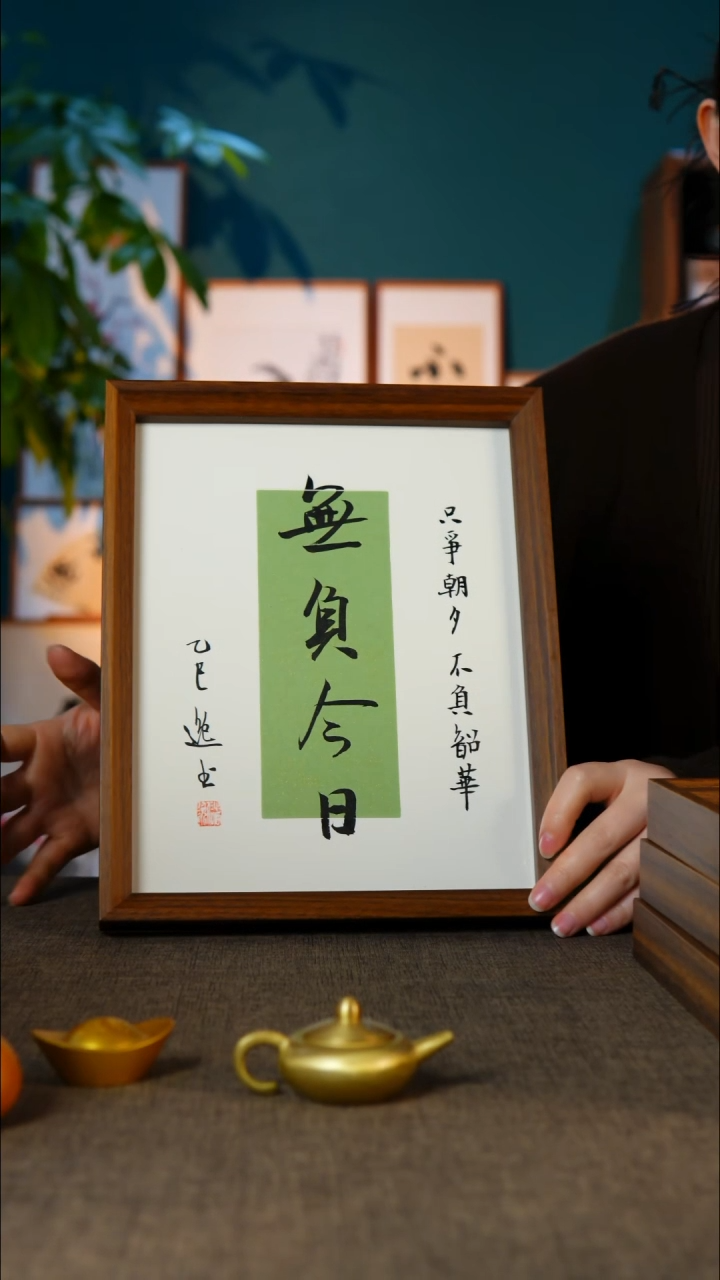 只爭朝夕 不負韶華
無負今日
乙巳 逸书